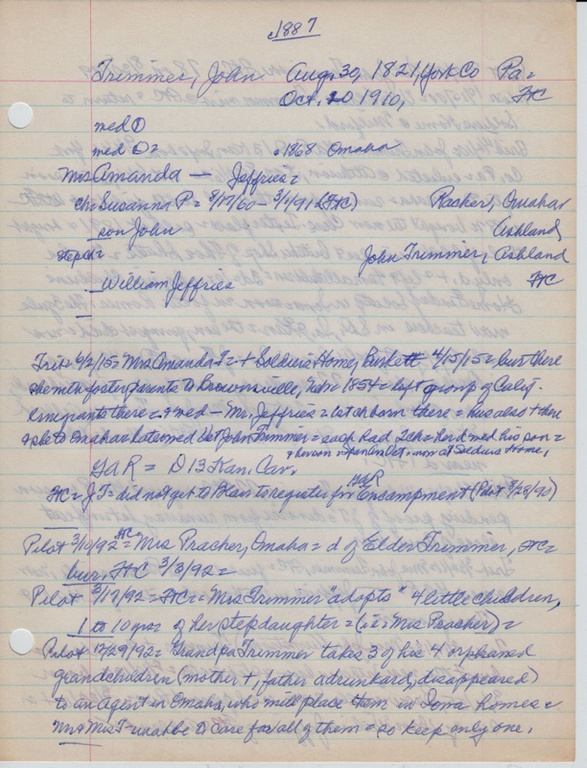 1887
Trimmer, John Aug. 30, 1821, York Co Pa =
Oct. 20 1910, HC
med ①
med ② = 1868 Omaha
Mrs Amanda — Jeffries =
ch = Susanna P = 8/17/60 - 3/1/91 (HC) Pracher, Omaha
son John Ashland
step ch = John Trimmer, Ashland
- William Jeffries HC
-
Trib 6/2/15 = Mrs Amanda T = + Soldiers Home, Burkett 4/15/15 = but there
she with foster parents to Brownsville, Nebr 1854 = left group of Calif.
Emigrants there = & med - Mr. Jeffries = 1st ch born there = hus also + there
& she to Omaha later med Capt John Trimmer = each had 2 ch = her d med his son =
& her son + Oct. now at Soldiers Home,
GaR = D 13 Kan. Cav.
HC = J T = did not get to Blair to register for GaR Encampment + (Pilot 8/28/90)
Pilot 3/10/92 = HC = Mrs Pracher, Omaha = d of Elder Trimmer, HC =
bur. HC 3/3/92 =
Pilot 3/17/92 = HC = Mrs Trimmer "adopts" 4 little children,
1 to 10 yrs of her stepdaughter = (i.e. = Mrs Pracher) =
Pilot 12/29/92 = Grandpa Trimmer takes 3 of his 4 orphaned
grandchildren (mother +, father a drunkard, disappeared)
to an Agent in Omaha, who will place them in Iowa homes =
Mr & Mrs T - unable to care for all of them = so keep only one.